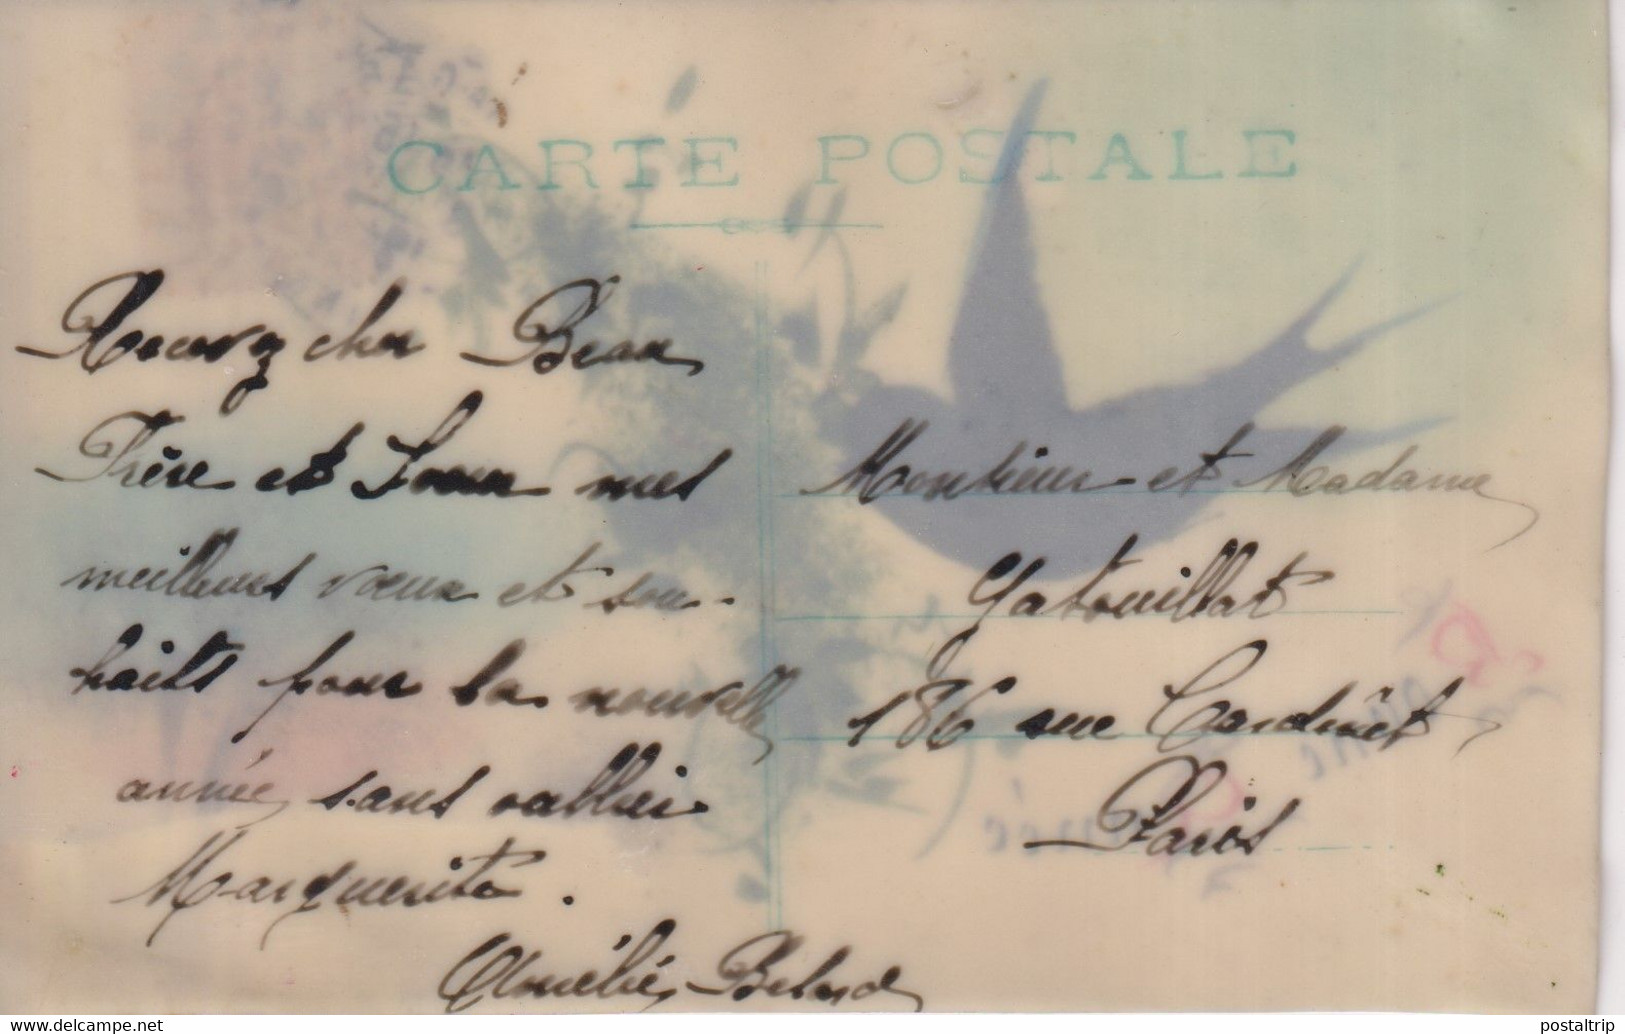 CARTE POSTALE
Recevez cher Beau
Frère et Soeur mes
meilleurs voeux et sou-
haits pour la nouvelle
année, sans oublier
Marguerite.
Amélie Belard
Monsieur et Madame
Gatouillat
186 rue Cardinet
Paris
www.delcampe.net
postaltrip